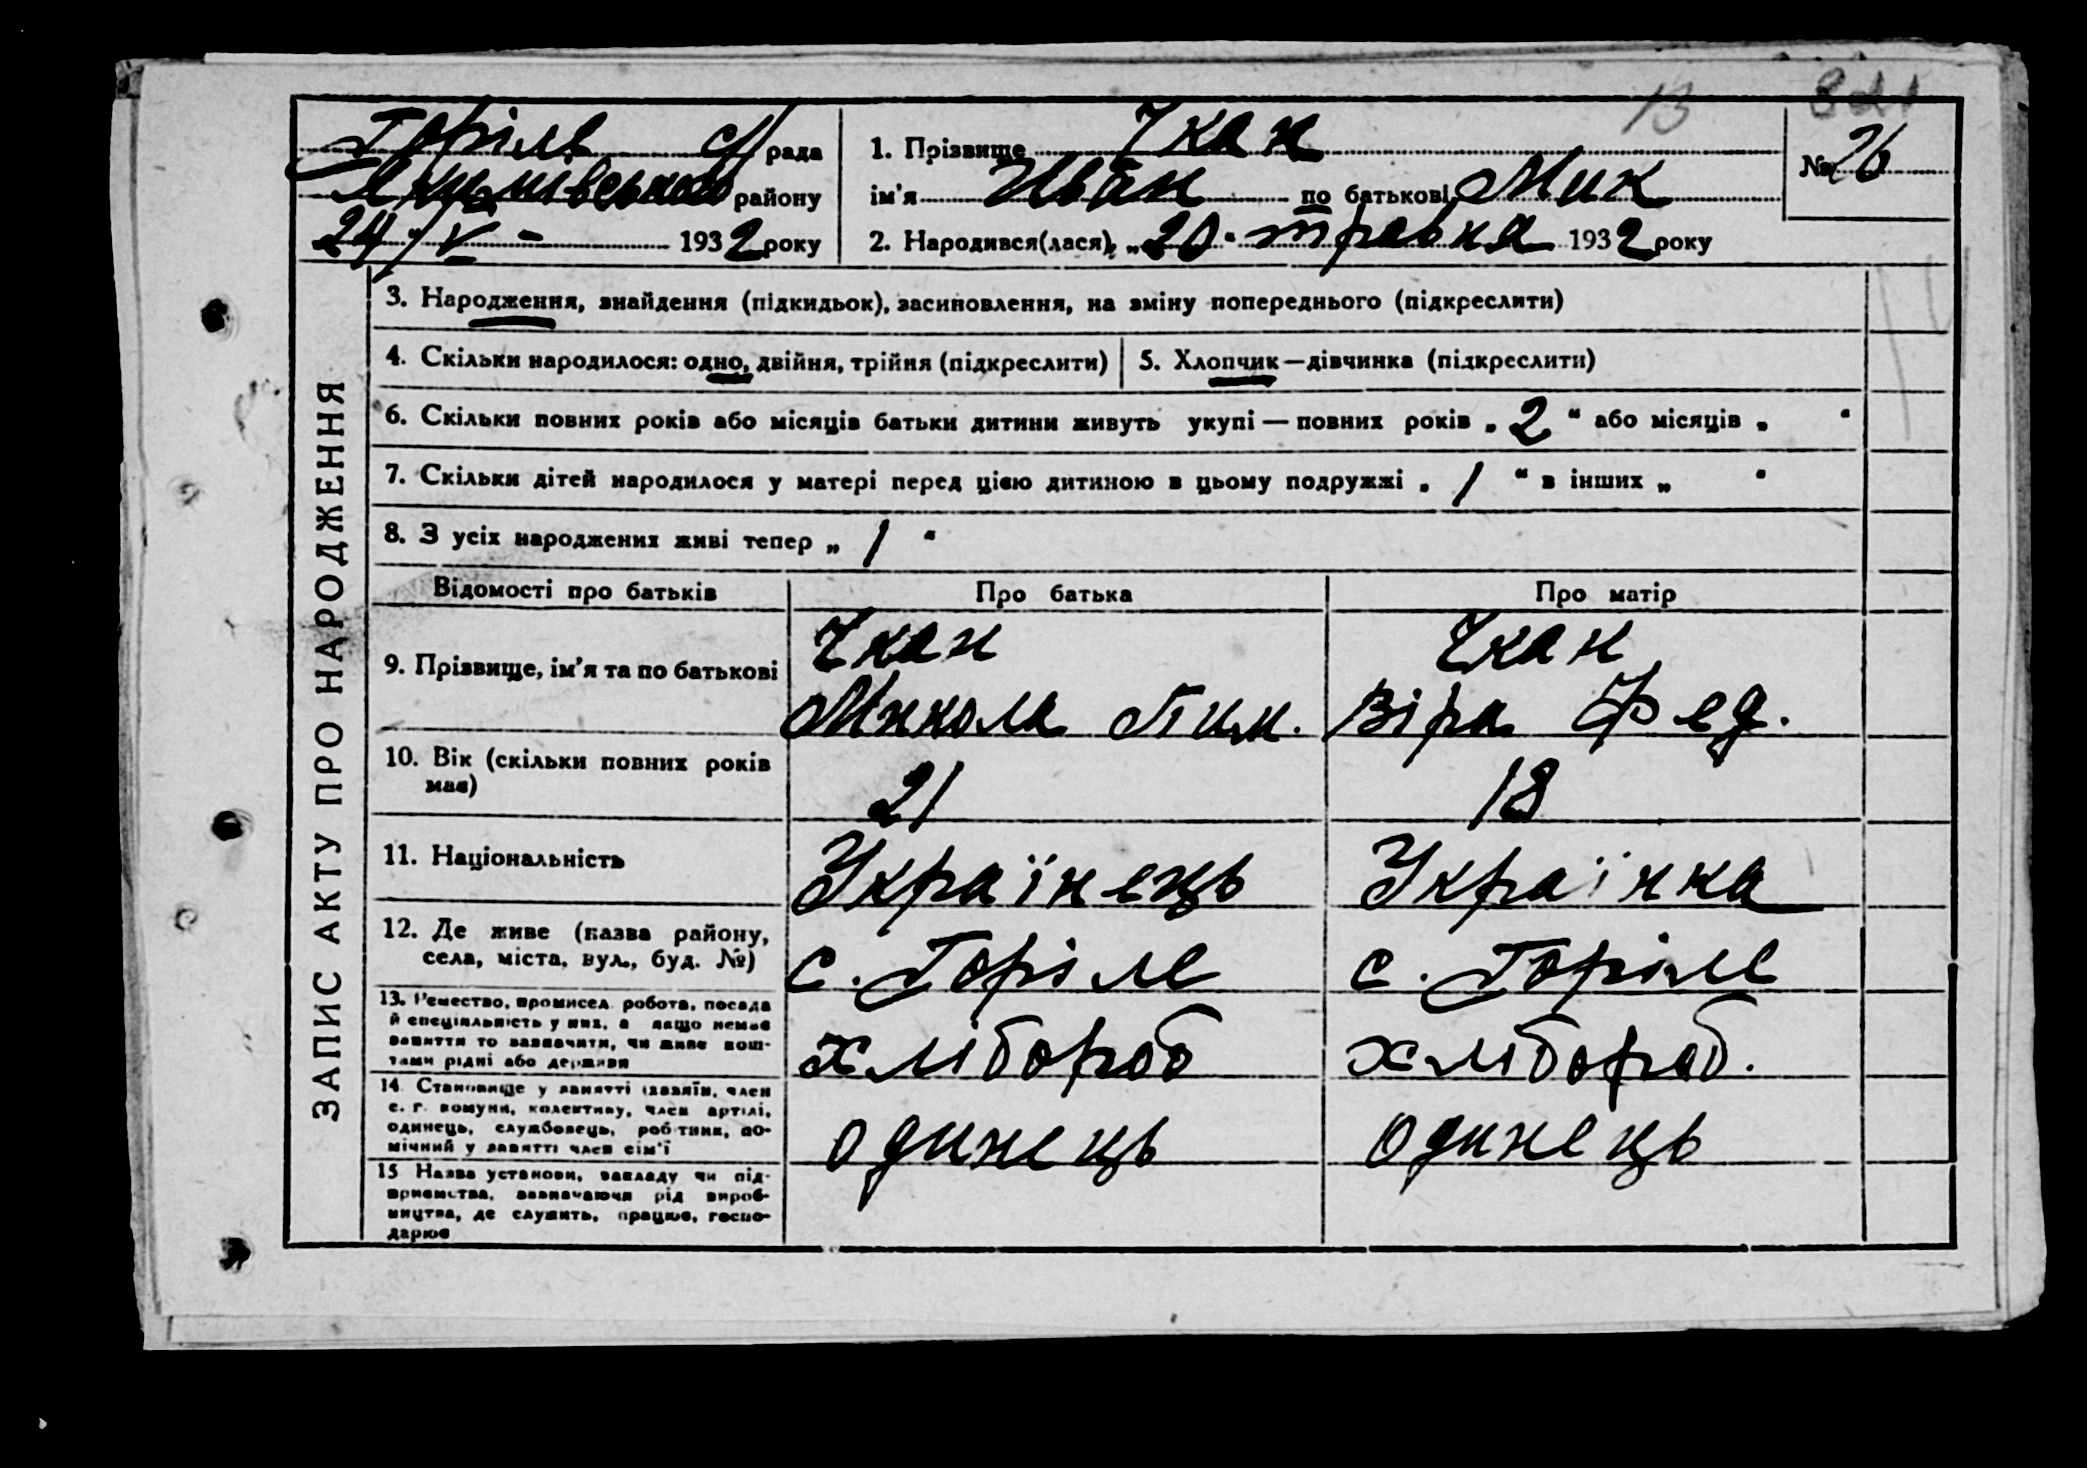 13 321
Горіле с/рада
Якимівського району
24/V - 1932 року
1. Прізвище Чкан
ім'я Иван по батькові Мик
2. Народився(лася) „20“ травня 1932 року
№ 26
ЗАПИС АКТУ ПРО НАРОДЖЕННЯ
3. Народження, знайдення (підкидьок), засиновлення, на зміну попереднього (підкреслити)
4. Скільки народилося: одно, двійня, трійня (підкреслити)
5. Хлопчик—дівчинка (підкреслити)
6. Скільки повних років або місяців батьки дитини живуть укупі — повних років „2“ або місяців „ “
7. Скільки дітей народилося у матері перед цією дитиною в цьому подружжі „1“ в інших „ “
8. З усіх народжених живі тепер „1“
Відомості про батьків Про батька Про матір
9. Прізвище, ім'я та по батькові
Чкан
Микола Тим.
Чкан
Віра Фед.
10. Вік (скільки повних років
має)
21
18
11. Національність
Українець
Українка
12. Де живе (назва району,
села, міста, вул., буд. №)
с. Горіле
с. Горіле
13. Ремество, промисел, робота, посада
й спеціяльність у них, а якщо немає
заняття то зазначити, чи живе кош-
тами рідні або держави
хлібороб
хлібороб.
14. Становище у занятті (хазяїн, член
с. г. комуни, колективу, член артілі,
одинець, службовець, робітник, по-
мічний у занятті член сім'ї
одинець
одинець
15 Назва установи, закладу чи під-
приємства, зазначаючи рід вироб-
ництва, де служить, працює, госпо-
дарює